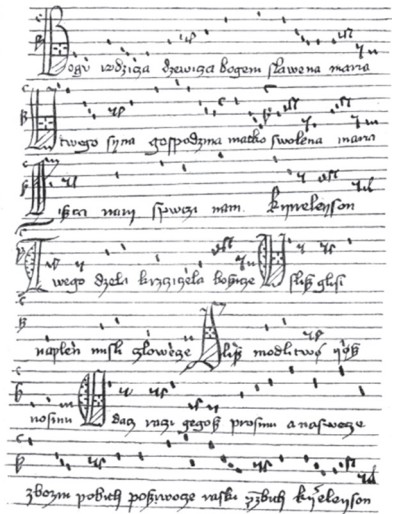 Bogu rodzicza dzewicza bogem slawena maria
U twego syna gospodzina matko swolena maria
Zisczi nam spwczi nam. kyrieleyson
Twego dzela krzcziczela bozicze Uslisz glosi
naplen misli czlowecze slisz modlitwo yøsz
nosimi Oddacz raczi gegosz prosimi a naswecze
zbozni pobith poszywocze raski przebith kyrieleyson